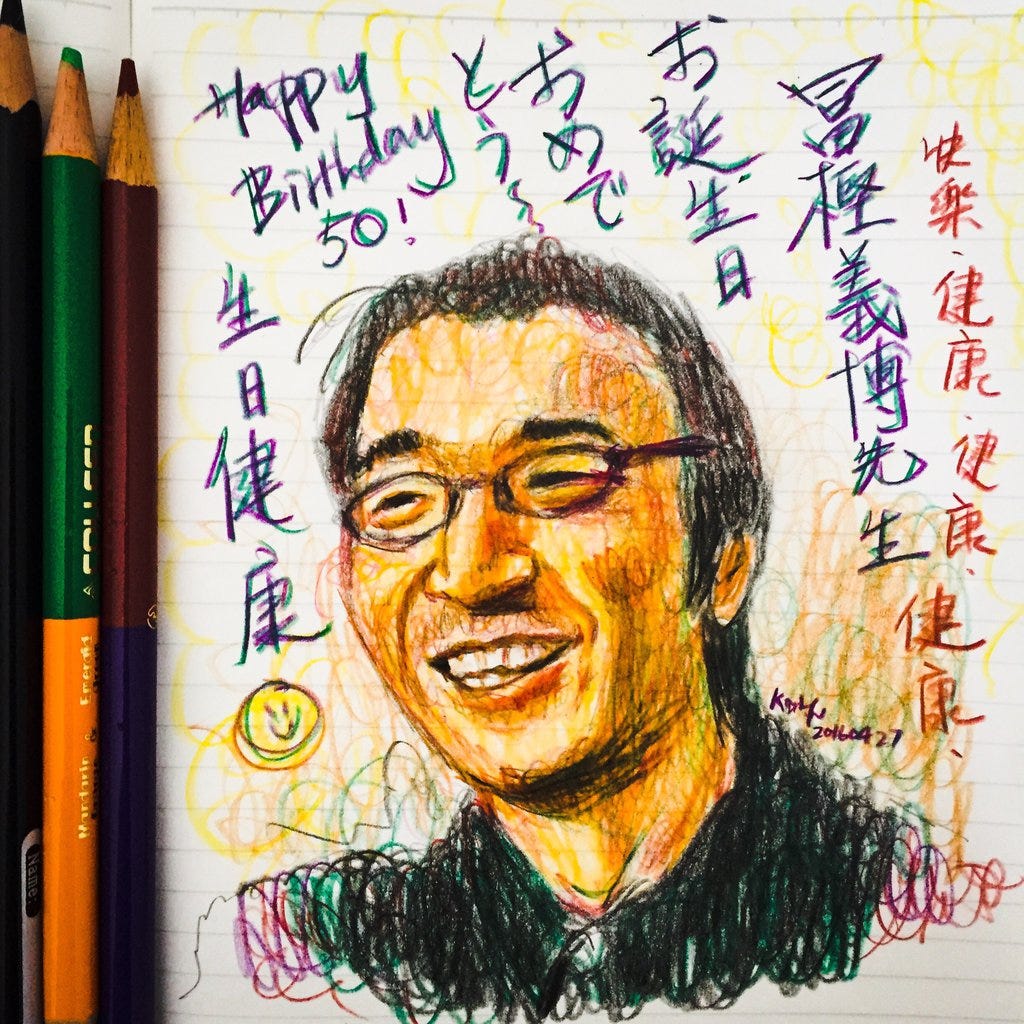 Happy
Birthday
50!
冨樫義博先生
お誕生日
おめで
とう~
生日健康
快樂、健康、健康、健康、
Kaiyu
20160427
COLLEEN
Name: